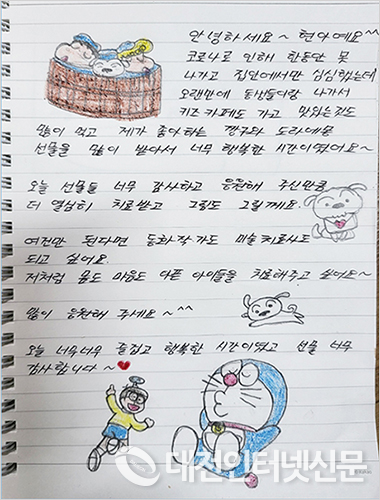 안녕하세요~ 현아예요^^
코로나로 인해 한동안 못
나가고 집안에서만 심심했는데
오랜만에 동생들이랑 나가서
키즈카페도 가고 맛있는것도
많이 먹고 제가 좋아하는 짱구와 도라에몽
선물을 많이 받아서 너무 행복한 시간이였어요~
오늘 선물들 너무 감사하고 응원해 주신만큼
더 열심히 치료받고 그림도 그릴께요.
여건만 된다면 동화작가도 미술치료사도
되고 싶어요.
저처럼 몸도 마음도 아픈 아이들을 치료해주고 싶어요~
많이 응원해 주세요~^^
오늘 너무너무 즐겁고 행복한 시간이였고 선물 너무
감사합니다~♥
대전인터넷신문